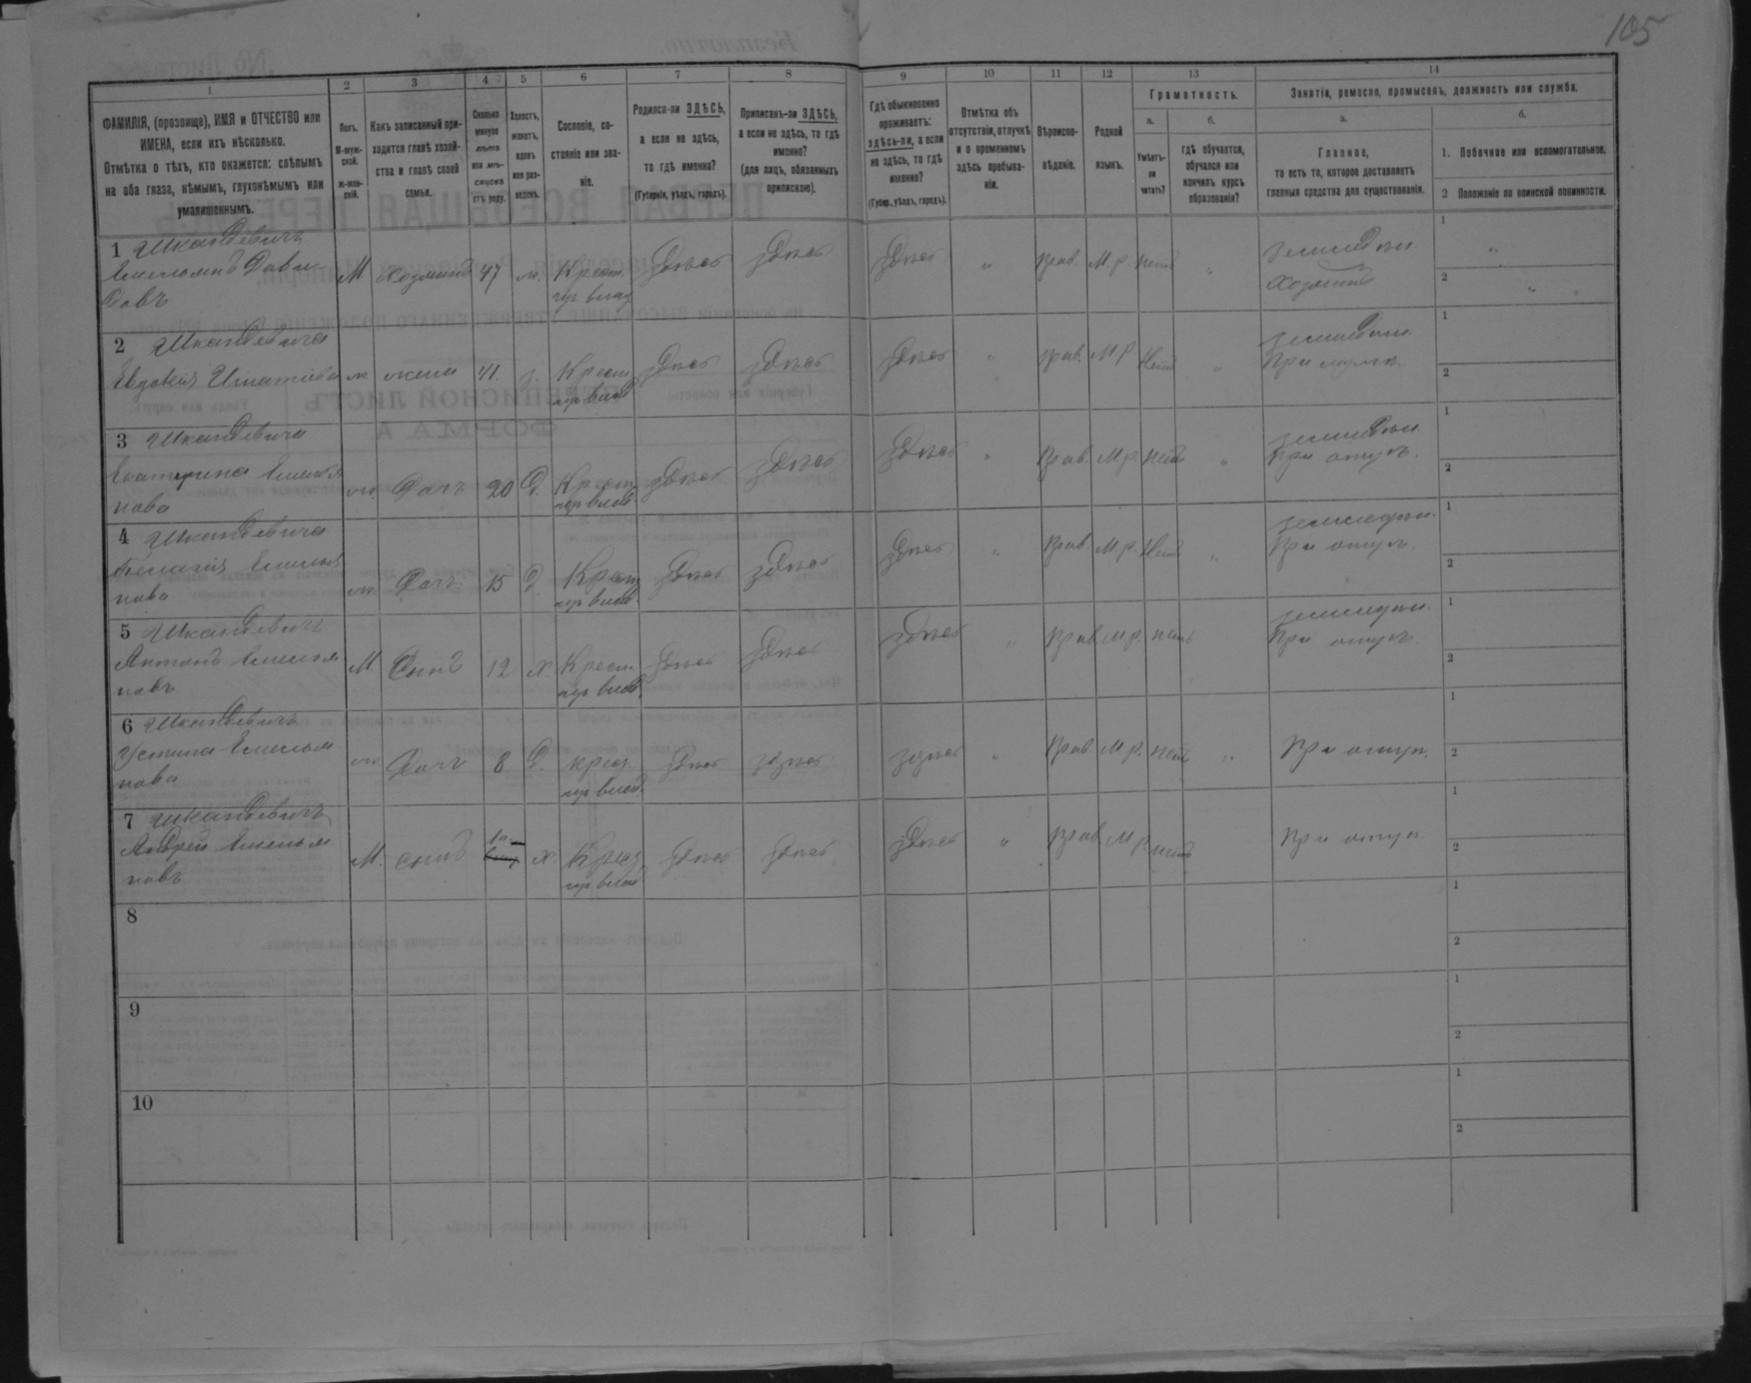 105
1 2 3 4 5 6 7 8 9 10 11 12 13 14
ФАМИЛІЯ, (прозвище), ИМЯ и ОТЧЕСТВО или
ИМЕНА, если ихъ нѣсколько.
Отмѣтка о тѣхъ, кто окажется: слѣпымъ
на оба глаза, нѣмымъ, глухонѣмымъ или
умалишеннымъ.
Полъ.
М-муж-
ской.
ж-жен-
скій.
Какъ записанный при-
ходится главѣ хозяй-
ства и главѣ своей
семьи.
Сколько
минуло
лѣтъ
или мѣ-
сяцевъ
отъ роду.
Холостъ,
женатъ,
вдовъ
или раз-
веденъ.
Сословіе, со-
стояніе или зва-
ніе.
Родился-ли ЗДѢСЬ,
а если не здѣсь,
то гдѣ именно?
(Губернія, уѣздъ, городъ).
Приписанъ-ли ЗДѢСЬ,
а если не здѣсь, то гдѣ
именно?
(для лицъ, обязанныхъ
припискою).
Гдѣ обыкновенно
проживаетъ:
здѣсь-ли, а если
не здѣсь, то гдѣ
именно?
(Губер., уѣздъ, городъ).
Отмѣтка объ
отсутствіи, отлучкѣ
и о временномъ
здѣсь пребыва-
ніи.
Вѣроиспо-
вѣданіе.
Родной
языкъ.
Грамотность.
а. б.
Умѣетъ-
ли
читать?
гдѣ обучается,
обучался или
кончилъ курсъ
образованія?
Занятія, ремесло, промыселъ, должность или служба.
а. б.
Главное,
то есть то, которое доставляетъ
главныя средства для существованія.
1. Побочное или вспомогательное.
2 Положеніе по воинской повинности.
1 Шкандевичъ
Емельянъ Дави-
довъ
М Хозяинъ 47 ж. Крест.
здѣсь здѣсь здѣсь " Прав. М.р. нетъ "
Хозяинъ
1 "
2 "
2 Шкандевича
Евдокія Игнатіева ж жена 41. з. Крест.
здѣсь здѣсь здѣсь " Прав. М р Нетъ "
При мужѣ.
1
2
3 Шкандевича
Екатерина Емелья
нова
ж дочь 20 д. Крест.
здѣсь здѣсь здѣсь " Прав. М р. нетъ "
При отцѣ.
1
2
4 Шкандевича
Пелагія Емелья
нова
ж дочь 15 д. Крест
здѣсь здѣсь здѣсь " Прав. М.р. Нетъ "
При отцѣ.
1
2
5 Шкандевичъ
Антонъ Емелья
новъ
М Сынъ 12 х. Крест.
здѣсь здѣсь здѣсь " Прав. М р. нетъ
При отцѣ.
1
2
6 Шкандевичъ
Устина Емелья
нова
ж Дочь 8 д. крест.
здѣсь здѣсь здѣсь " Прав М.р. нетъ "
При отцѣ.
1
2
7 Шкандевичъ
Андрей Емелья
новъ
М. сынъ х. Крест.
здѣсь здѣсь здѣсь " Прав. М р. нетъ
При отцѣ
1
2
8
1
2
9
1
2
10
1
2